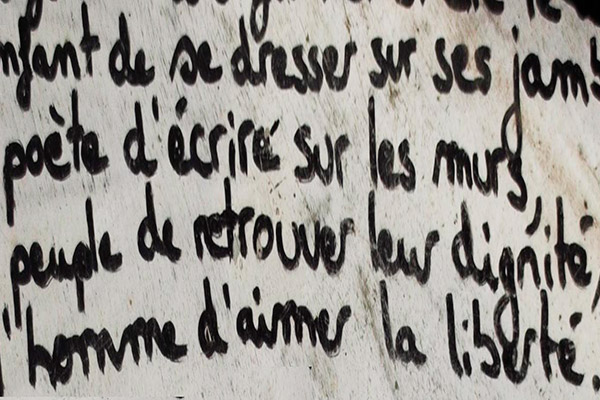 nfant de se dresser sur ses jamb
poète d'écrire sur les murs,
peuple de retrouver leur dignité,
l'homme d'aimer la liberté.